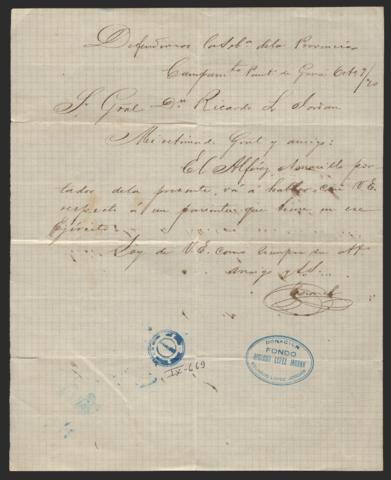 Defendemos la Sob.ª de la Provincia
Campam.to Punt.ª de Oct.e 7/70
S.r Gral D.n Ricardo L. Jordan
Mi estimado Gral y amigo:
El Alferez por-
tador de la presente, vá á hablar con V.E.
respecto á un pariente que tiene en ese
Ejército.
Soy de V.E. como siempre su att.º
amigo y S.S.
DONACIÓN
FONDO
RICARDO LÓPEZ JORDÁN
699-XI